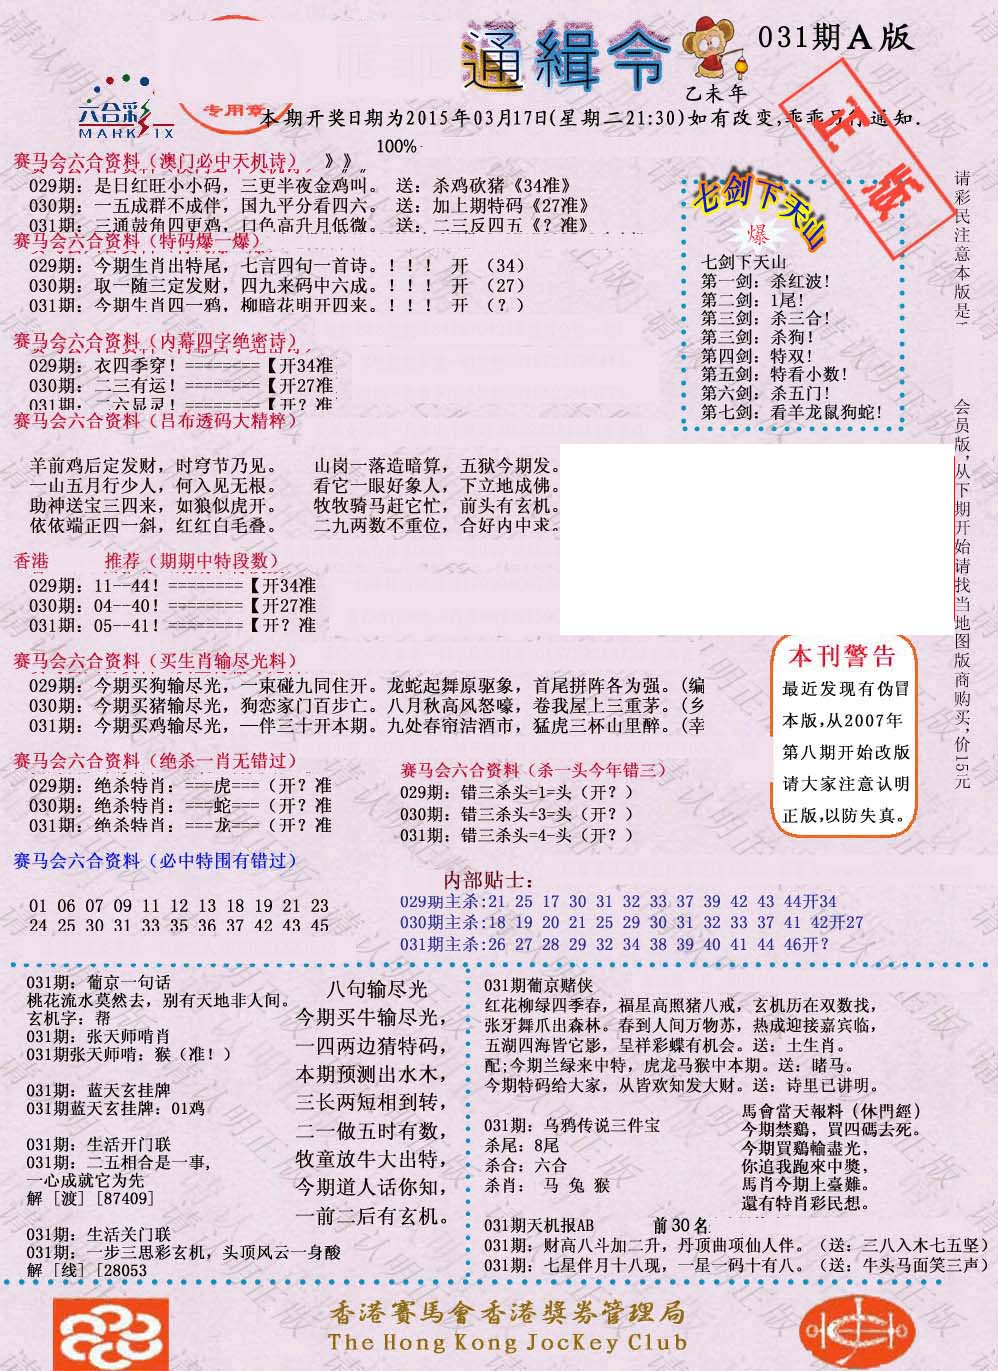 通緝令
乙未年
031期A版
六合彩
MARK SIX
专用章
正版
本期开奖日期为2015年03月17日(星期二21:30)如有改变,乖乖另行通知.
100%
赛马会六合资料（澳门必中天机诗） 》》
029期: 是日红旺小小码, 三更半夜金鸡叫。 送: 杀鸡砍猪《34准》
030期: 一五成群不成伴, 国九平分看四六。 送: 加上期特码《27准》
031期: 三通鼓角四更鸡, 口色高升月低微。 送: 二三反四五《? 准》
赛马会六合资料（特码爆一爆）
029期: 今期生肖出特尾, 七言四句一首诗。！！！ 开 （34）
030期: 取一随三定发财, 四九来码中六成。！！！ 开 （27）
031期: 今期生肖四一鸦, 柳暗花明开四来。！！！ 开 （? ）
赛马会六合资料（内幕四字绝密诗）
029期: 衣四季穿! ========【开34准
030期: 二三有运! ========【开27准
031期: 二六显灵! ========【开? 准
七剑下天山
爆
七剑下天山
第一剑: 杀红波!
第二剑: 1尾!
第三剑: 杀三合!
第三剑: 杀狗!
第四剑: 特双!
第五剑: 特看小数!
第六剑: 杀五门!
第七剑: 看羊龙鼠狗蛇!
请彩民注意本版是
会员版,从下期开始请找当地图版商购买,价15元
赛马会六合资料（吕布透码大精粹）
羊前鸡后定发财, 时穹节乃见。 山岗一落造暗算, 五狱今期发。
一山五月行少人, 何入见无根。 看它一眼好象人, 下立地成佛。
助神送宝三四来, 如狼似虎开。 牧牧骑马赶它忙, 前头有玄机。
依依端正四一斜, 红红白毛叠。 二九两数不重位, 合好内中求。
香港 推荐（期期中特段数）
029期: 11--44! ========【开34准
030期: 04--40! ========【开27准
031期: 05--41! ========【开? 准
赛马会六合资料（买生肖输尽光料）
029期: 今期买狗输尽光, 一束碰九同住开。龙蛇起舞原驱象, 首尾拼阵各为强。(编
030期: 今期买猪输尽光, 狗恋家门百步亡。八月秋高风怒嚎, 卷我屋上三重茅。(乡
031期: 今期买鸡输尽光, 一伴三十开本期。九处春帘洁酒市, 猛虎三杯山里醉。(幸
本刊警告
最近发现有伪冒
本版,从2007年
第八期开始改版
请大家注意认明
正版,以防失真。
赛马会六合资料（绝杀一肖无错过）
029期: 绝杀特肖: ===虎===（开? 准
030期: 绝杀特肖: ===蛇===（开? 准
031期: 绝杀特肖: ===龙===（开? 准
赛马会六合资料（杀一头今年错三）
029期: 错三杀头=1=头（开? ）
030期: 错三杀头=3=头（开? ）
031期: 错三杀头=4-头（开? ）
赛马会六合资料（必中特围有错过）
01 06 07 09 11 12 13 18 19 21 23
24 25 30 31 33 35 36 37 42 43 45
内部贴士:
029期主杀:21 25 17 30 31 32 33 37 39 42 43 44开34
030期主杀:18 19 20 21 25 29 30 31 32 33 37 41 42开27
031期主杀:26 27 28 29 32 34 38 39 40 41 44 46开?
031期: 葡京一句话
桃花流水莫然去, 别有天地非人间。
玄机字: 帮
031期: 张天师啃肖
031期张天师啃: 猴（准!）
031期: 蓝天玄挂牌
031期蓝天玄挂牌: 01鸡
031期: 生活开门联
031期: 二五相合是一事,
一心成就它为先
解 [渡] [87409]
031期: 生活关门联
031期: 一步三思彩玄机, 头顶风云一身酸
解 [线] [28053
八句输尽光
今期买牛输尽光,
一四两边猜特码,
本期预测出水木,
三长两短相到转,
二一做五时有数,
牧童放牛大出特,
今期道人话你知,
一前二后有玄机。
031期葡京赌侠
红花柳绿四季春, 福星高照猪八戒, 玄机历在双数找,
张牙舞爪出森林。春到人间万物苏, 热成迎接嘉宾临,
五湖四海皆它影, 呈祥彩蝶有机会。送: 土生肖。
配;今期兰绿来中特, 虎龙马猴中本期。送: 睹马。
今期特码给大家, 从皆欢知发大财。送: 诗里已讲明。
031期: 乌鸦传说三件宝
杀尾: 8尾
杀合: 六合
杀肖: 马 兔 猴
馬會當天報料（休門經）
今期禁鷄, 買四碼去死。
今期買鷄輸盡光,
你追我跑來中獎,
馬肖今期上臺難。
還有特肖彩民想。
031期天机报AB 前30名
031期: 财高八斗加二升, 丹顶曲项仙人伴。（送: 三八入木七五竖）
031期: 七星伴月十八现, 一星一码十有八。（送: 牛头马面笑三声）
香港賽馬會香港獎券管理局
The Hong Kong JocKey Club